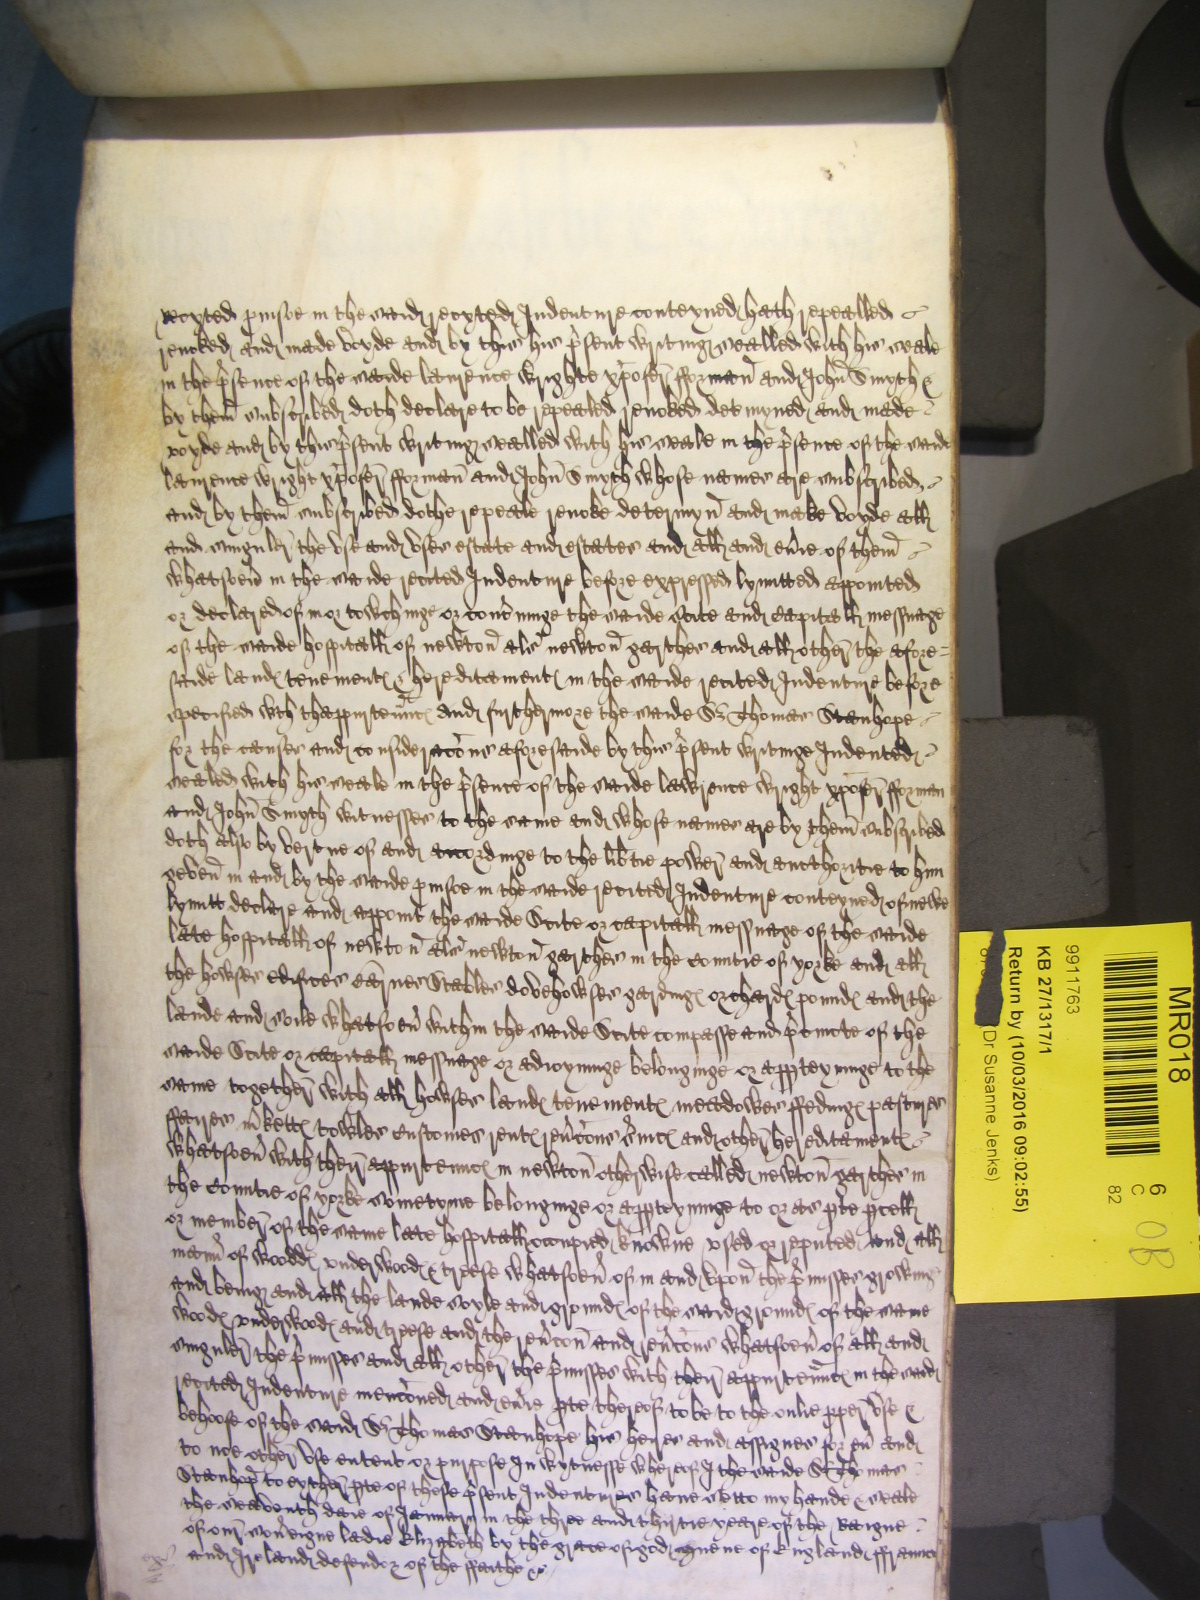 recyted p̲visoe in the said recyted Indenture conteyned hath repealled
revoked and made voyde and by this his p̃sent writing sealled with his seale
in the p̃sence of the saide Laurence Wrighte xp̃ofer̃ fforman̄ and John̄ Smyth &
by them̄ subscribed doth declare to be repealed revoked det̲myned and made
voyde and by this p̃sent writing sealled with his seale in the p̃sence of the saide
Laurence Wright xp̃ofer̃ fforman̄ and John̄ Smyth whose names are subscribed
and by them̄ subscribed dothe repeale revoke determyn̄ and make voyde all
and singuler̃ the vse and vses estate and estates and all and eu̔ie of them̄
whatsoeu̔ in the saide recited Indenture before expressed lymitted appointed
or declared of in or towchinge or conc̃ninge the saide Scite and Capitall messuage
of the saide hospitall of newton̄ al̃s newton̄ garthes and all other̃ the afore=
saide land℮ tenement℮ & hereditament℮ in the saide recited Indenture before
specified wth thappurten̄nc℮ And furthermore the saide Sr Thomas Stanhope
for the causes and considerac̃ons aforesaide by this p̃sent writinge Indented
sealed with his seale in the p̃sence of the saide Lawrence Wright xp̃ofer̃ fforman
and John̄ Smyth witnesses to the same and whose names are by them̄ subscribed
doth also by vertue of and accordinge to the lib̃tie power̃ and aucthoritie to him
geven̄ in and by the saide p̲visoe in the saide recited Indenture conteyned of newe
lymitt declare and appoint the saide Scite or capitall messuage of the saide
late hospitall of newton̄ al̃s newton̄ garthes in the Countie of yorke and all
the howses edifices barnes Stables dovehowses garding℮ orchard℮ pound℮ and the
lande and soile whatsoeu̔ within the saide Scite compasse and p̃cincte of the
saide Scite or capitall messuage or adioyninge belonginge or app̲teyninge to the
same together̃ with all howses land℮ tenement℮ meadowes ffeding℮ pastures
ffaires m̃kett℮ towles customes rent℮ reu̔c̃ons s̃uic℮ and other̃ hereditament℮
whatsoeu̔ with their̃ appurtenn̄c℮ in newton̄ otherwise called newton̄ garthes in
the Countie of yorke sometyme belonginge or app̲teyninge to or as p̲te p̲cell
or member̃ of the same late hospitall occupied knowne vsed or reputed And all
man̄r of woodd℮ vnderwood℮ & treese whatsoeu̔ of in and vpon̄ the p̃misses growing
and being and all the lande soyle and ground℮ of the said ground℮ of the same
wood℮ vnderwood℮ and treese and the reu̔c̃on and reu̔c̃ons whatsoeu̔ of all and
singuler̃ the p̃misses and all other̃ the p̃misses with their̃ appurten̄nc℮ in the said
recited Indenture menc̃oned and eu̔ie p̲te thereof to be to the onlie p̲per̃ vse &
behoofe of the said Sr Thomas Stanhope his heires and assignes for eu̔ and
to noe other̃ vse entent or purpose In wytnesse whereof I the saide Sr Thomas
Stanhop̃ to eyther̃ p̲te of these p̃sent Indentures have setto my hande & seale
the seaventh daie of January in the three and thirtie yeare of the Raigne
of our̃ sou̔eigne ladie Elizabeth by the grace of god Quene of England ffraunce
and Ireland defendor of the ffaithe &c
MR018
6
C
82
OB
9911763
KB 27/1317/1
Return by (10/03/2016 09:02:55)
(Dr Susanne Jenks)